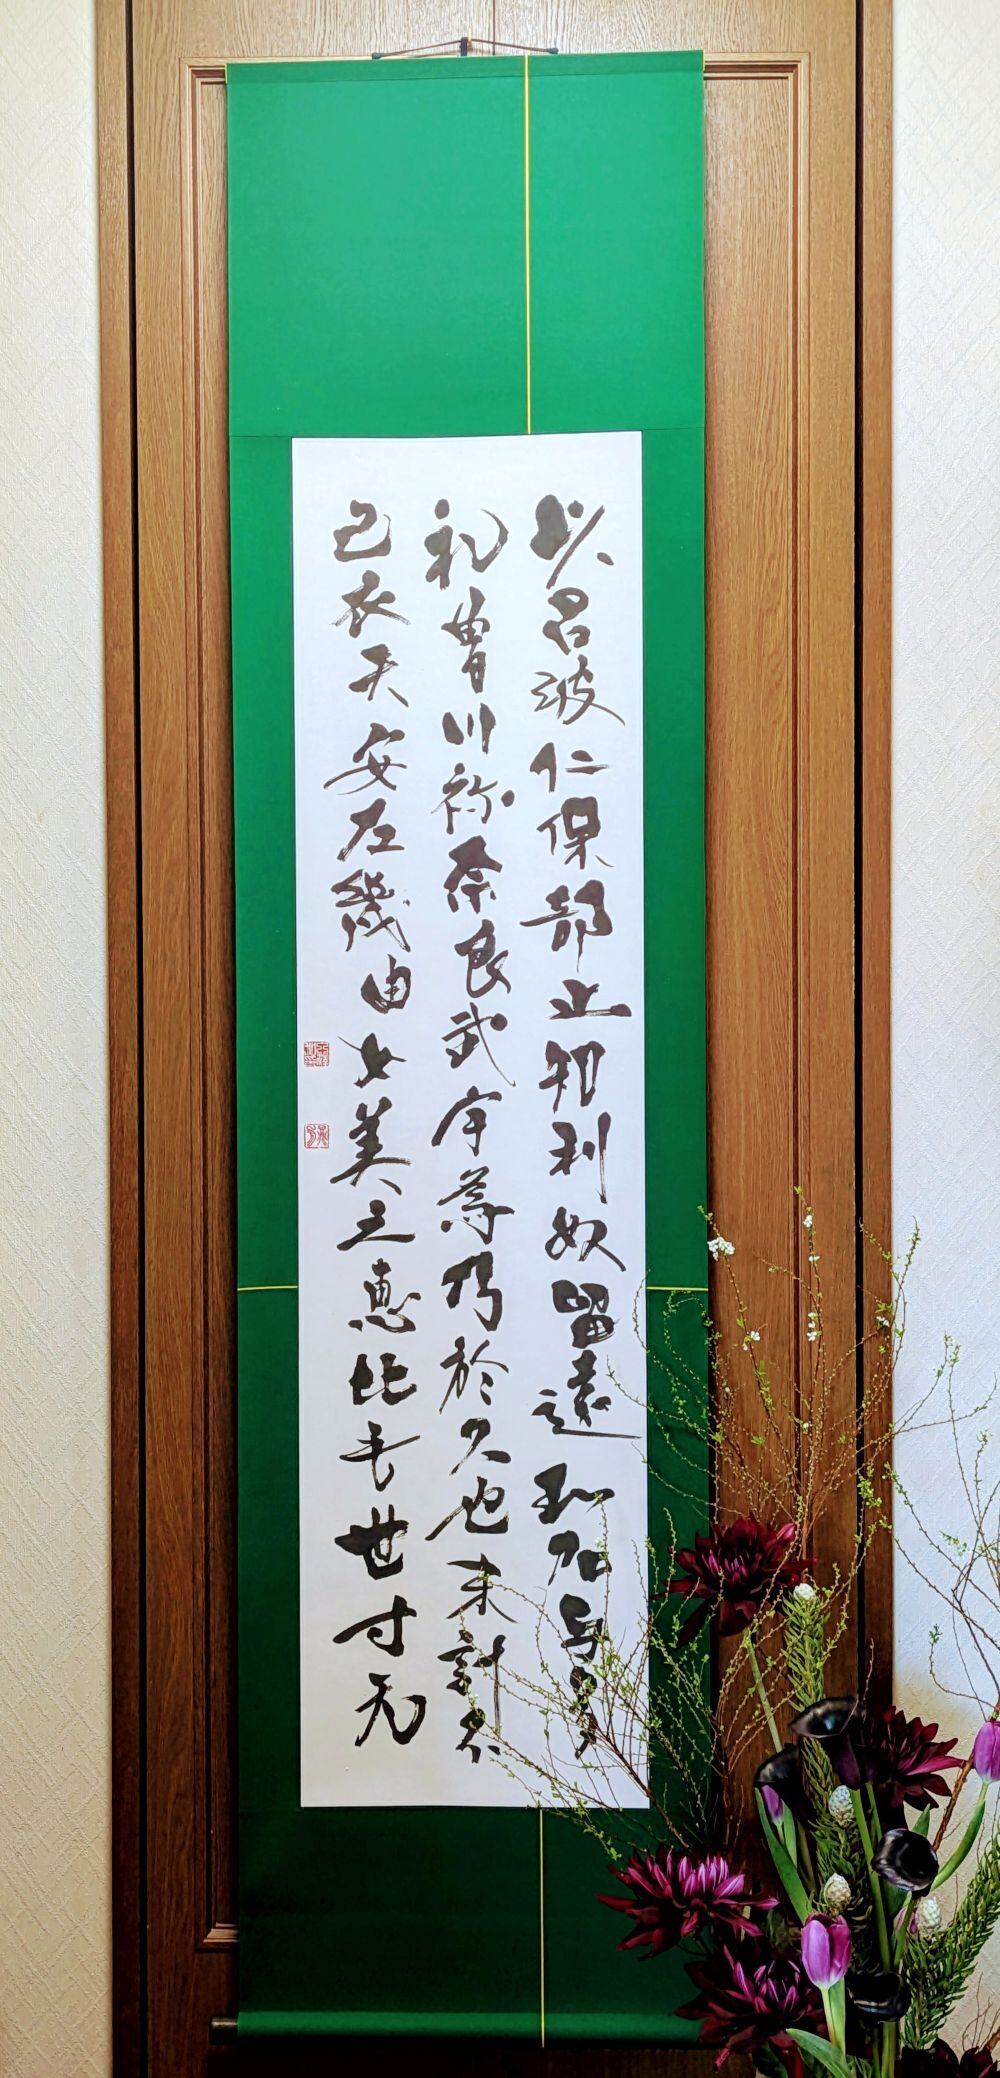 以呂波仁保部止知利奴留遠和加与多
礼曽川祢奈良武宇為乃於久也末計不
己衣天安左幾由女美之恵比毛世寸无